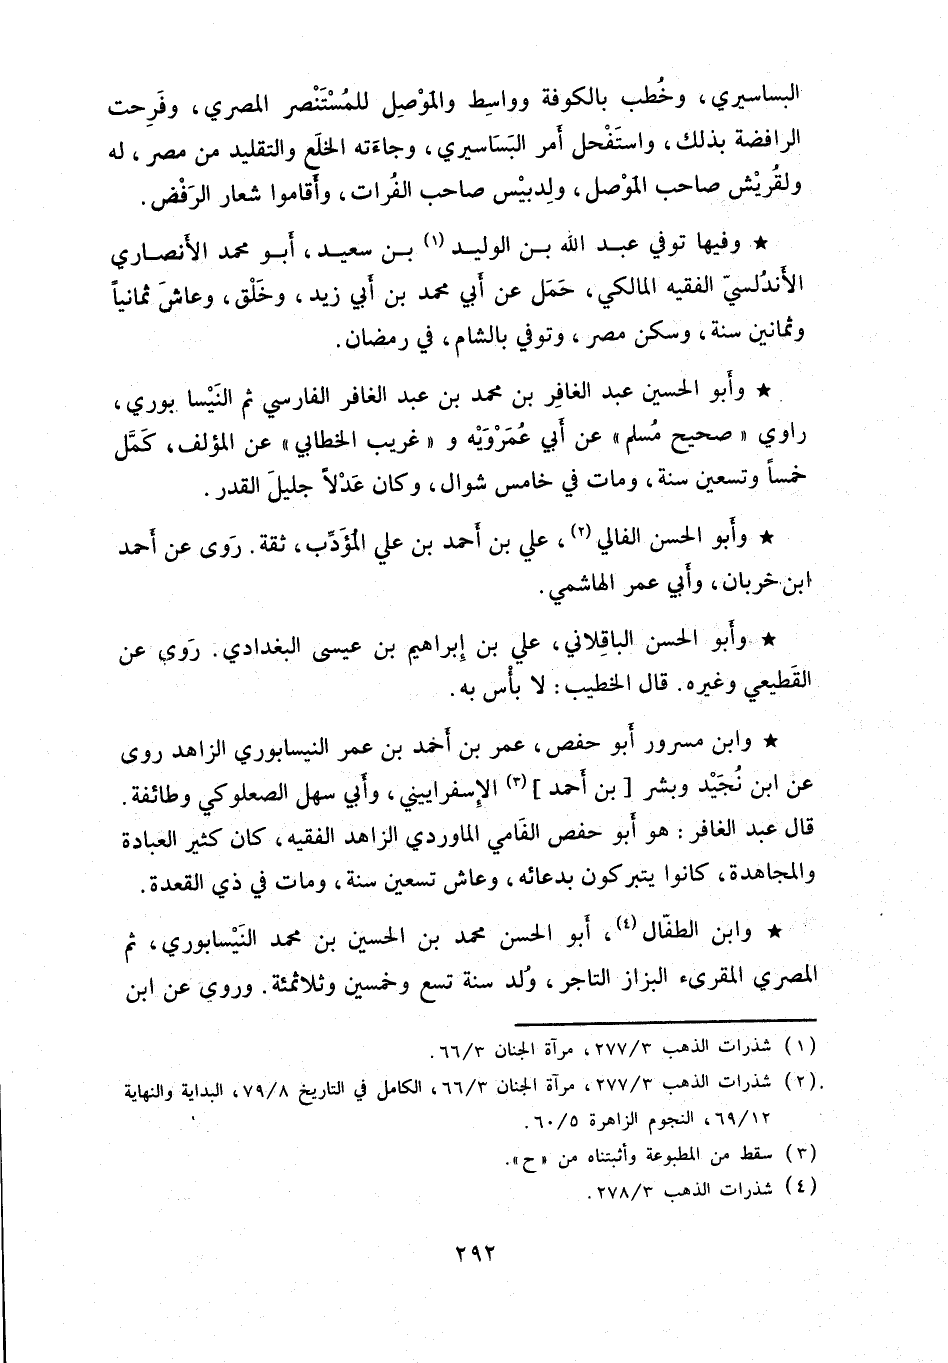 البساسيري، وخُطب بالكوفة وواسِط والمَوْصِل للمُسْتَنْصر المصري، وفَرِحت
الرافضة بذلك، واستَفْحل أَمر البَسَاسيري، وجاءَته الخلَع والتقليد من مصر، له
ولقُريْش صاحب المَوْصل، ولِدبيْس صاحب الفُرات، وأَقاموا شعار الرَفْض.
★ وفيها توفي عبد الله بن الوليد (١) بن سعيد، أَبو محمد الأَنصاري
الأَندُلسيّ الفقيه المالكي، حَمَل عن أَبي محمد بن أَبي زيد، وخَلْق، وعاشَ ثمانياً
وثمانين سنة، وسكن مصر، وتوفي بالشام، في رمضان.
★ وأَبو الحسين عبد الغافِر بن محمد بن عبد الغافر الفارسي ثم النَيْسا بوري،
راوي « صحيح مُسلم » عن أَبي عُمَرْوَيْه و « غريب الخطابي » عن المؤلف، كَمَّل
خمساً وتسعين سنة، ومات في خامس شوال، وكان عَدْلاً جليلَ القدر.
★ وأَبو الحسن الفالي (٢)، علي بن أَحمد بن علي المُؤَدِّب، ثقة. رَوى عن أَحمد
ابن خربان، وأَبي عمر الهاشمي.
★ وأَبو الحسن الباقِلاني، علي بن إبراهيم بن عيسى البغدادي. رَوى عن
القَطيعي وغيره. قال الخطيب: لا بأْس به.
★ وابن مسرور أَبو حفص، عمر بن أَحمد بن عمر النيسابوري الزاهد روى
عن ابن نُجَيْد وبشر [ بن أَحمد ] (٣) الإسفراييني، وأَبي سهل الصعلوكي وطائفة.
قال عبد الغافر: هو أَبو حفص الفَامي الماوردي الزاهد الفقيه، كان كثير العبادة
والمجاهدة، كانوا يتبركون بدعائه، وعاش تسعين سنة، ومات في ذي القعدة.
★ وابن الطفّال (٤)، أَبو الحسن محمد بن الحسين بن محمد النَيْسابوري، ثم
المصري المقرىء البزاز التاجر، وُلد سنة تسع وخمسين وثلاثمئة. وروي عن ابن
(١) شذرات الذهب ٢٧٧/٣، مرآة الجنان ٦٦/٣.
(٢) شذرات الذهب ٢٧٧/٣، مرآة الجنان ٦٦/٣، الكامل في التاريخ ٧٩/٨، البداية والنهاية
٦٩/١٢، النجوم الزاهرة ٦٠/٥.
(٣) سقط من المطبوعة وأثبتناه من « ح ».
(٤) شذرات الذهب ٢٧٨/٣.
٢٩٢